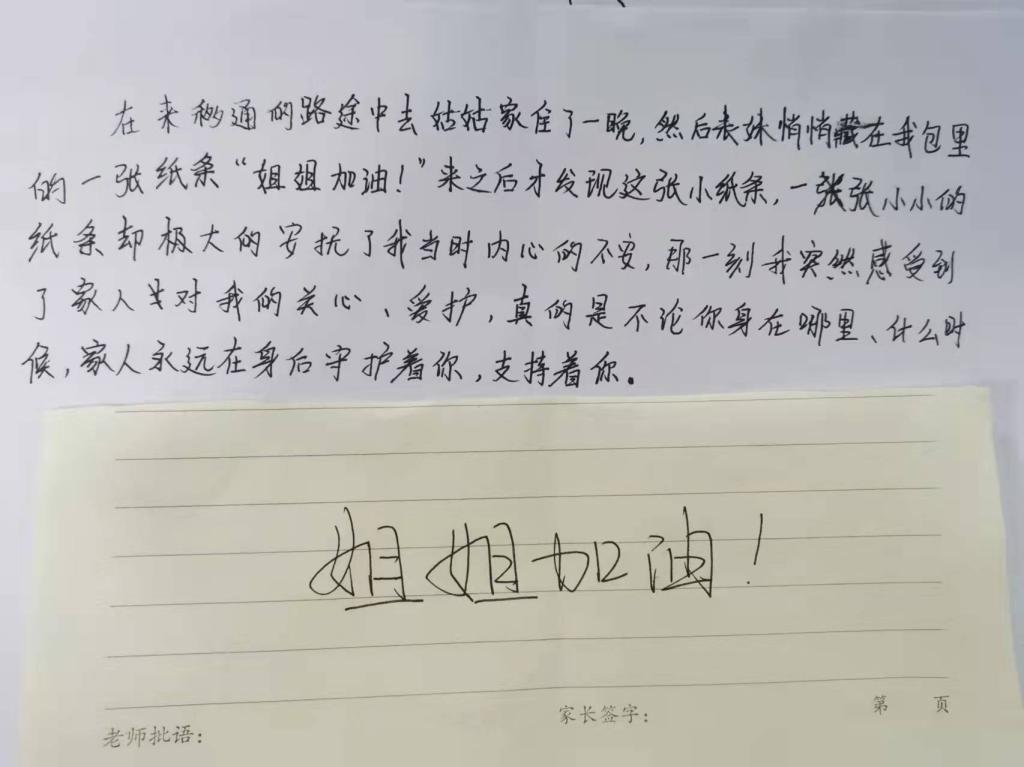 在来秒通的路途中去姑姑家住了一晚，然后表妹悄悄藏在我包里
的一张纸条“姐姐加油！”来之后才发现这张小纸条，一张张小小的
纸条却极大的安抚了我当时内心的不安，那一刻我突然感受到
了家人对我的关心、爱护，真的是不论你身在哪里、什么时
候，家人永远在身后守护着你，支持着你。
姐姐加油！
老师批语： 家长签字： 第 页